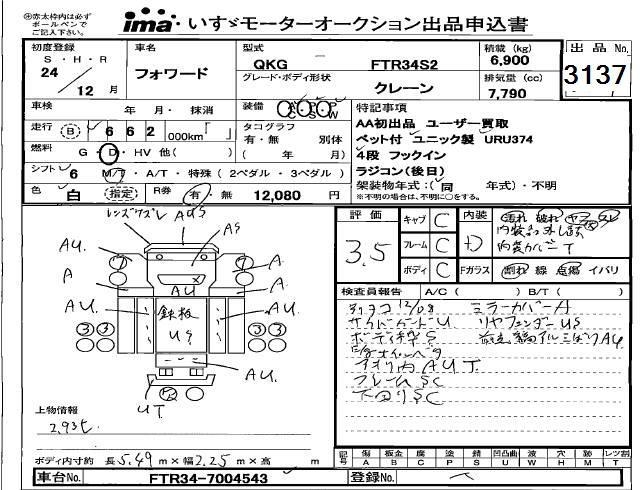 ※赤太枠内は必ず
ボールペンで
ご記入下さい。
ima いすゞモーターオークション出品申込書
初度登録
S・H・R
24
12 月
車名
フォワード
型式
QKG － FTR34S2
グレード・ボディ形状
クレーン
積載 (kg)
6,900
排気量 (cc)
7,790
出品 No.
3137
車検 年 月・抹消
装備 AC PS PW
特記事項
AA初出品 ユーザー買取
ベット付 ユニック製 URU374
4段 フックイン
ラジコン(後日)
架装物年式:(同 年式)・不明
※不明の場合は、不明に○をする。
走行 B 662 000km「 」
タコグラフ
有・無 別体
( 年 月)
燃料 G・D・HV 他( )
シフト 6 M/T・A/T・特殊(2ペダル・3ペダル)
色 白 指定
R券 有・無 12,080 円
評価
3.5
キャブ C
フレーム C
ボディ C
内装 D
汚れ 破れ ヤブ スレ
内装カバーT
Fガラス 割れ 線 点傷 イバリ
レンズワレ AUS
AS
AU.
A
A
AU
AU.
AU.
鉄板
US
③③
③③
AU.
UT
上物情報
2.93t
ボディ内寸約 長 5.49 m×幅 2.25 m×高 m
検査員報告 A/C ( ) B/T ( )
12/08 ミラーカバーA
サイドガードU リヤフェンダーUS
アオリ内AUT
フレームSC
下回りSC
記号 傷A 板金B 腐C 塗P 錆S 凹凸曲U 波W 穴H 跡M レツ割T
車台No. FTR34-7004543
登録No.